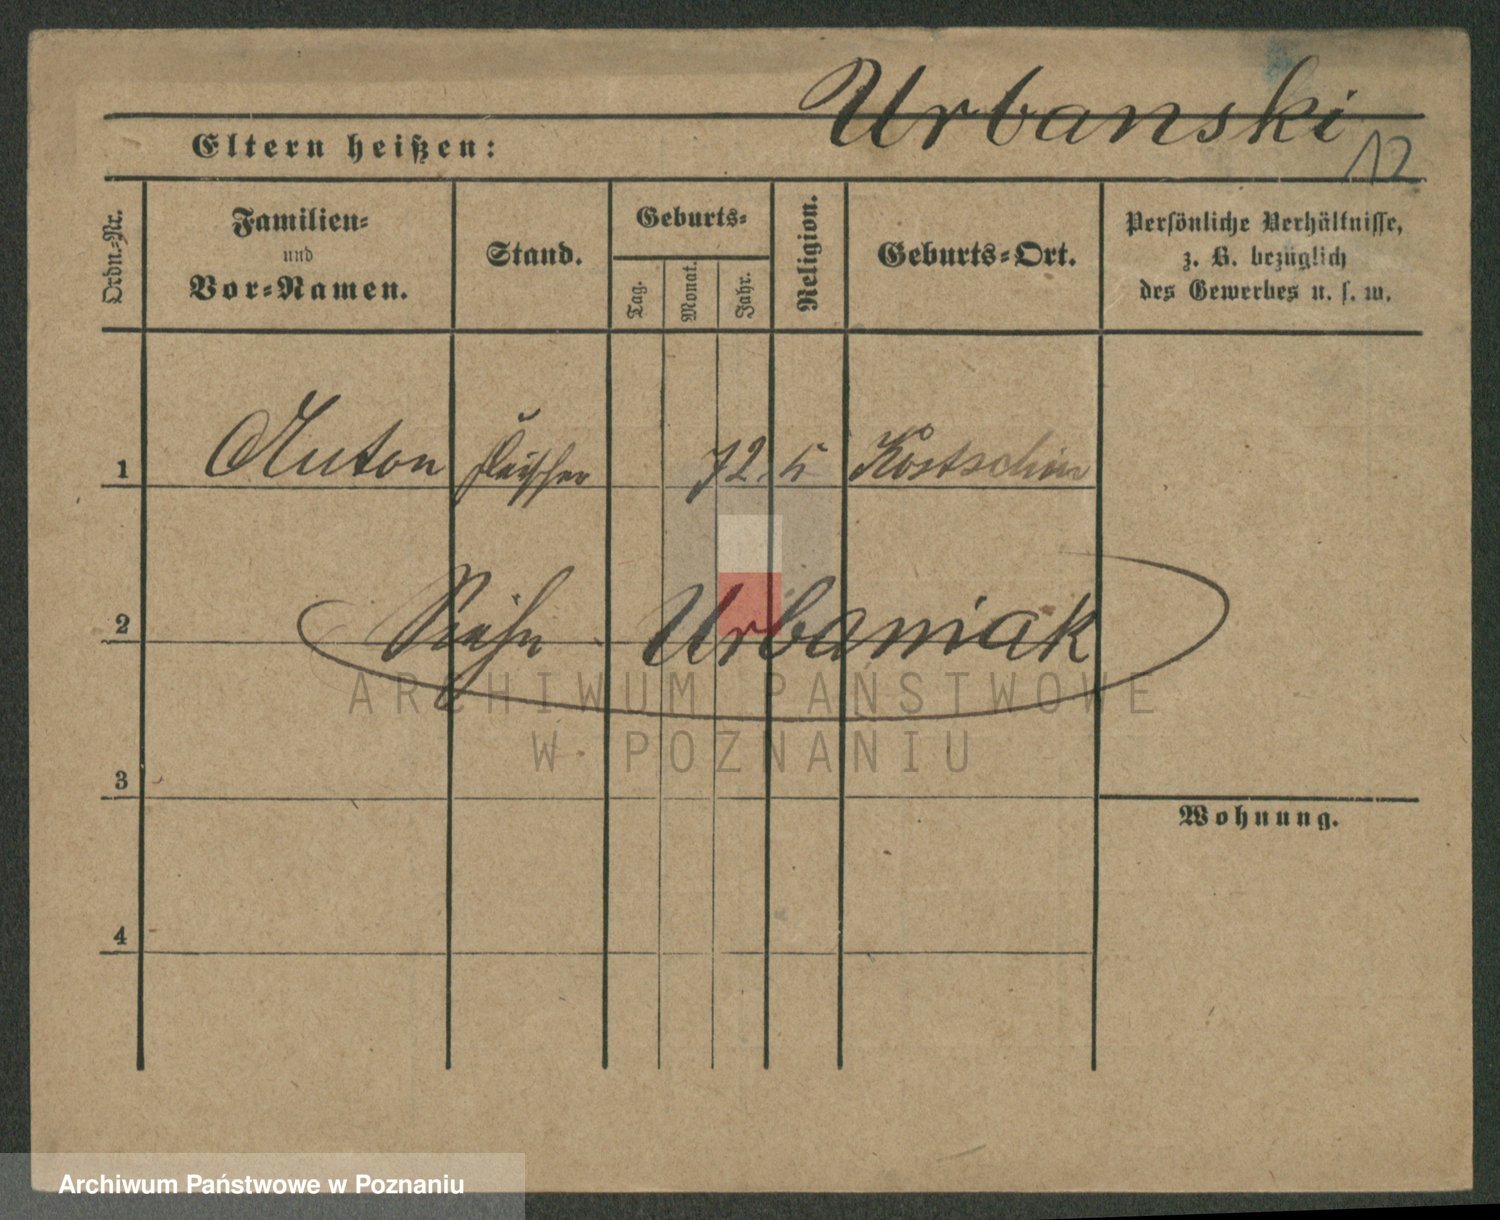 Urbanski
12
Eltern heißen:
Ordn.-Nr.
Familien-
und
Vor-Namen.
Stand.
Geburts-
Tag.
Monat.
Jahr.
Religion.
Geburts-Ort.
Persönliche Verhältnisse,
z. B. bezüglich
des Gewerbes u. s. w.
1 Anton Fleischer 72. k Kostschin
2 Siehe Urbaniak
ARCHIWUM PAŃSTWOWE
W POZNANIU
3
Wohnung.
4
Archiwum Państwowe w Poznaniu